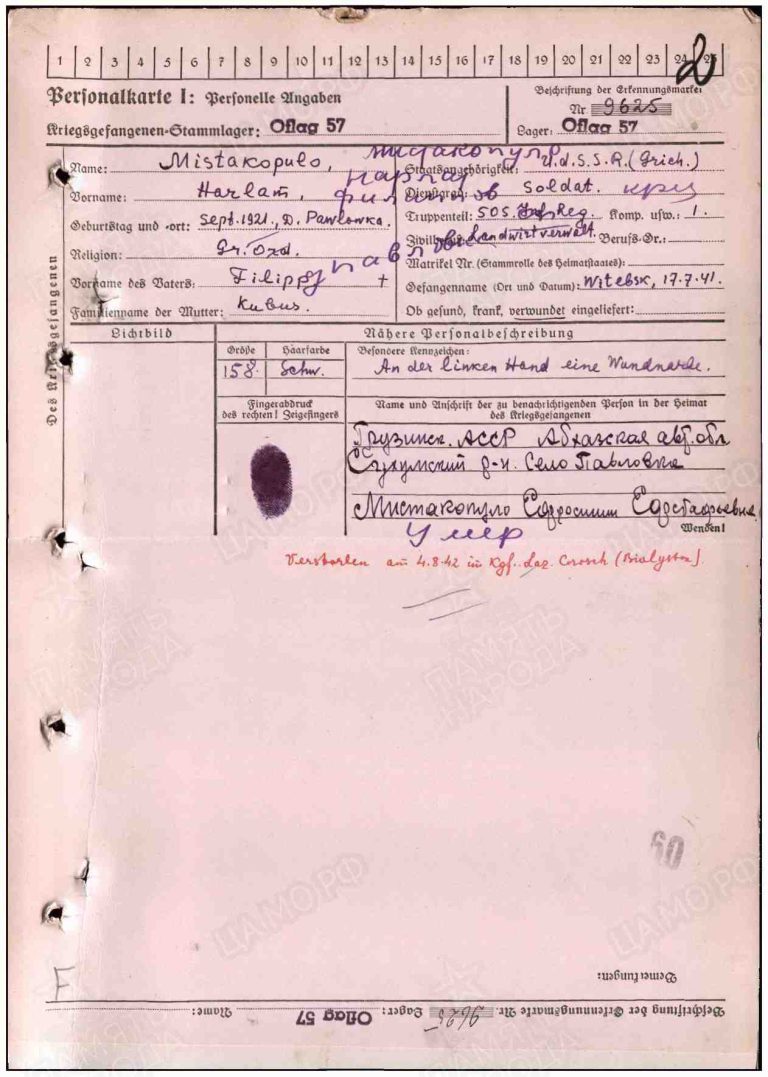 1 2 3 4 5 6 7 8 9 10 11 12 13 14 15 16 17 18 19 20 21 22 23 24 25
2
Personalkarte I: Personelle Angaben
Beschriftung der Erkennungsmarke
Nr 9625
Kriegsgefangenen-Stammlager: Oflag 57
Lager: Oflag 57
Des Kriegsgefangenen
Name: Mistakopulo,
Мистакопуло
Staatsangehörigkeit: U.d.S.S.R. (Grich.)
Vorname: Harlam,
Dienstgrad: Soldat.
Geburtstag und -ort: Sept. 1921., D. Pawlowka.
Truppenteil: 505. Inf. Reg. Komp. usw.: 1.
Religion: Gr. Oxd.
Landwirtverwalt. Berufs-Gr.:
Matrikel Nr. (Stammrolle des Heimatstaates):
Vorname des Vaters: Filipp +
Gefangenname (Ort und Datum): Witebsk, 17.7.41.
Familienname der Mutter: Kubus.
Ob gesund, krank, verwundet eingeliefert:
Lichtbild
Nähere Personalbeschreibung
Größe Haarfarbe Besondere Kennzeichen:
158. Schw. An der linken Hand eine Wundnarde.
Fingerabdruck
des rechten! Zeigefingers
Name und Anschrift der zu benachrichtigenden Person in der Heimat
des Kriegsgefangenen
Грузинск. АССР Абхазская авт. обл
Сухумский р-н. Село Павловка
Мистакопуло
Wenden!
Умер
Verstorben am 4.8.42 im Kgf. Laz. Corosch (Bialystok).
60
F
Bemerkungen:
Beschriftung der Erkennungsmarke Nr. 9625 Lager: Oflag 57 Name:
ПАМЯТЬ НАРОДА
ЦАМО РФ